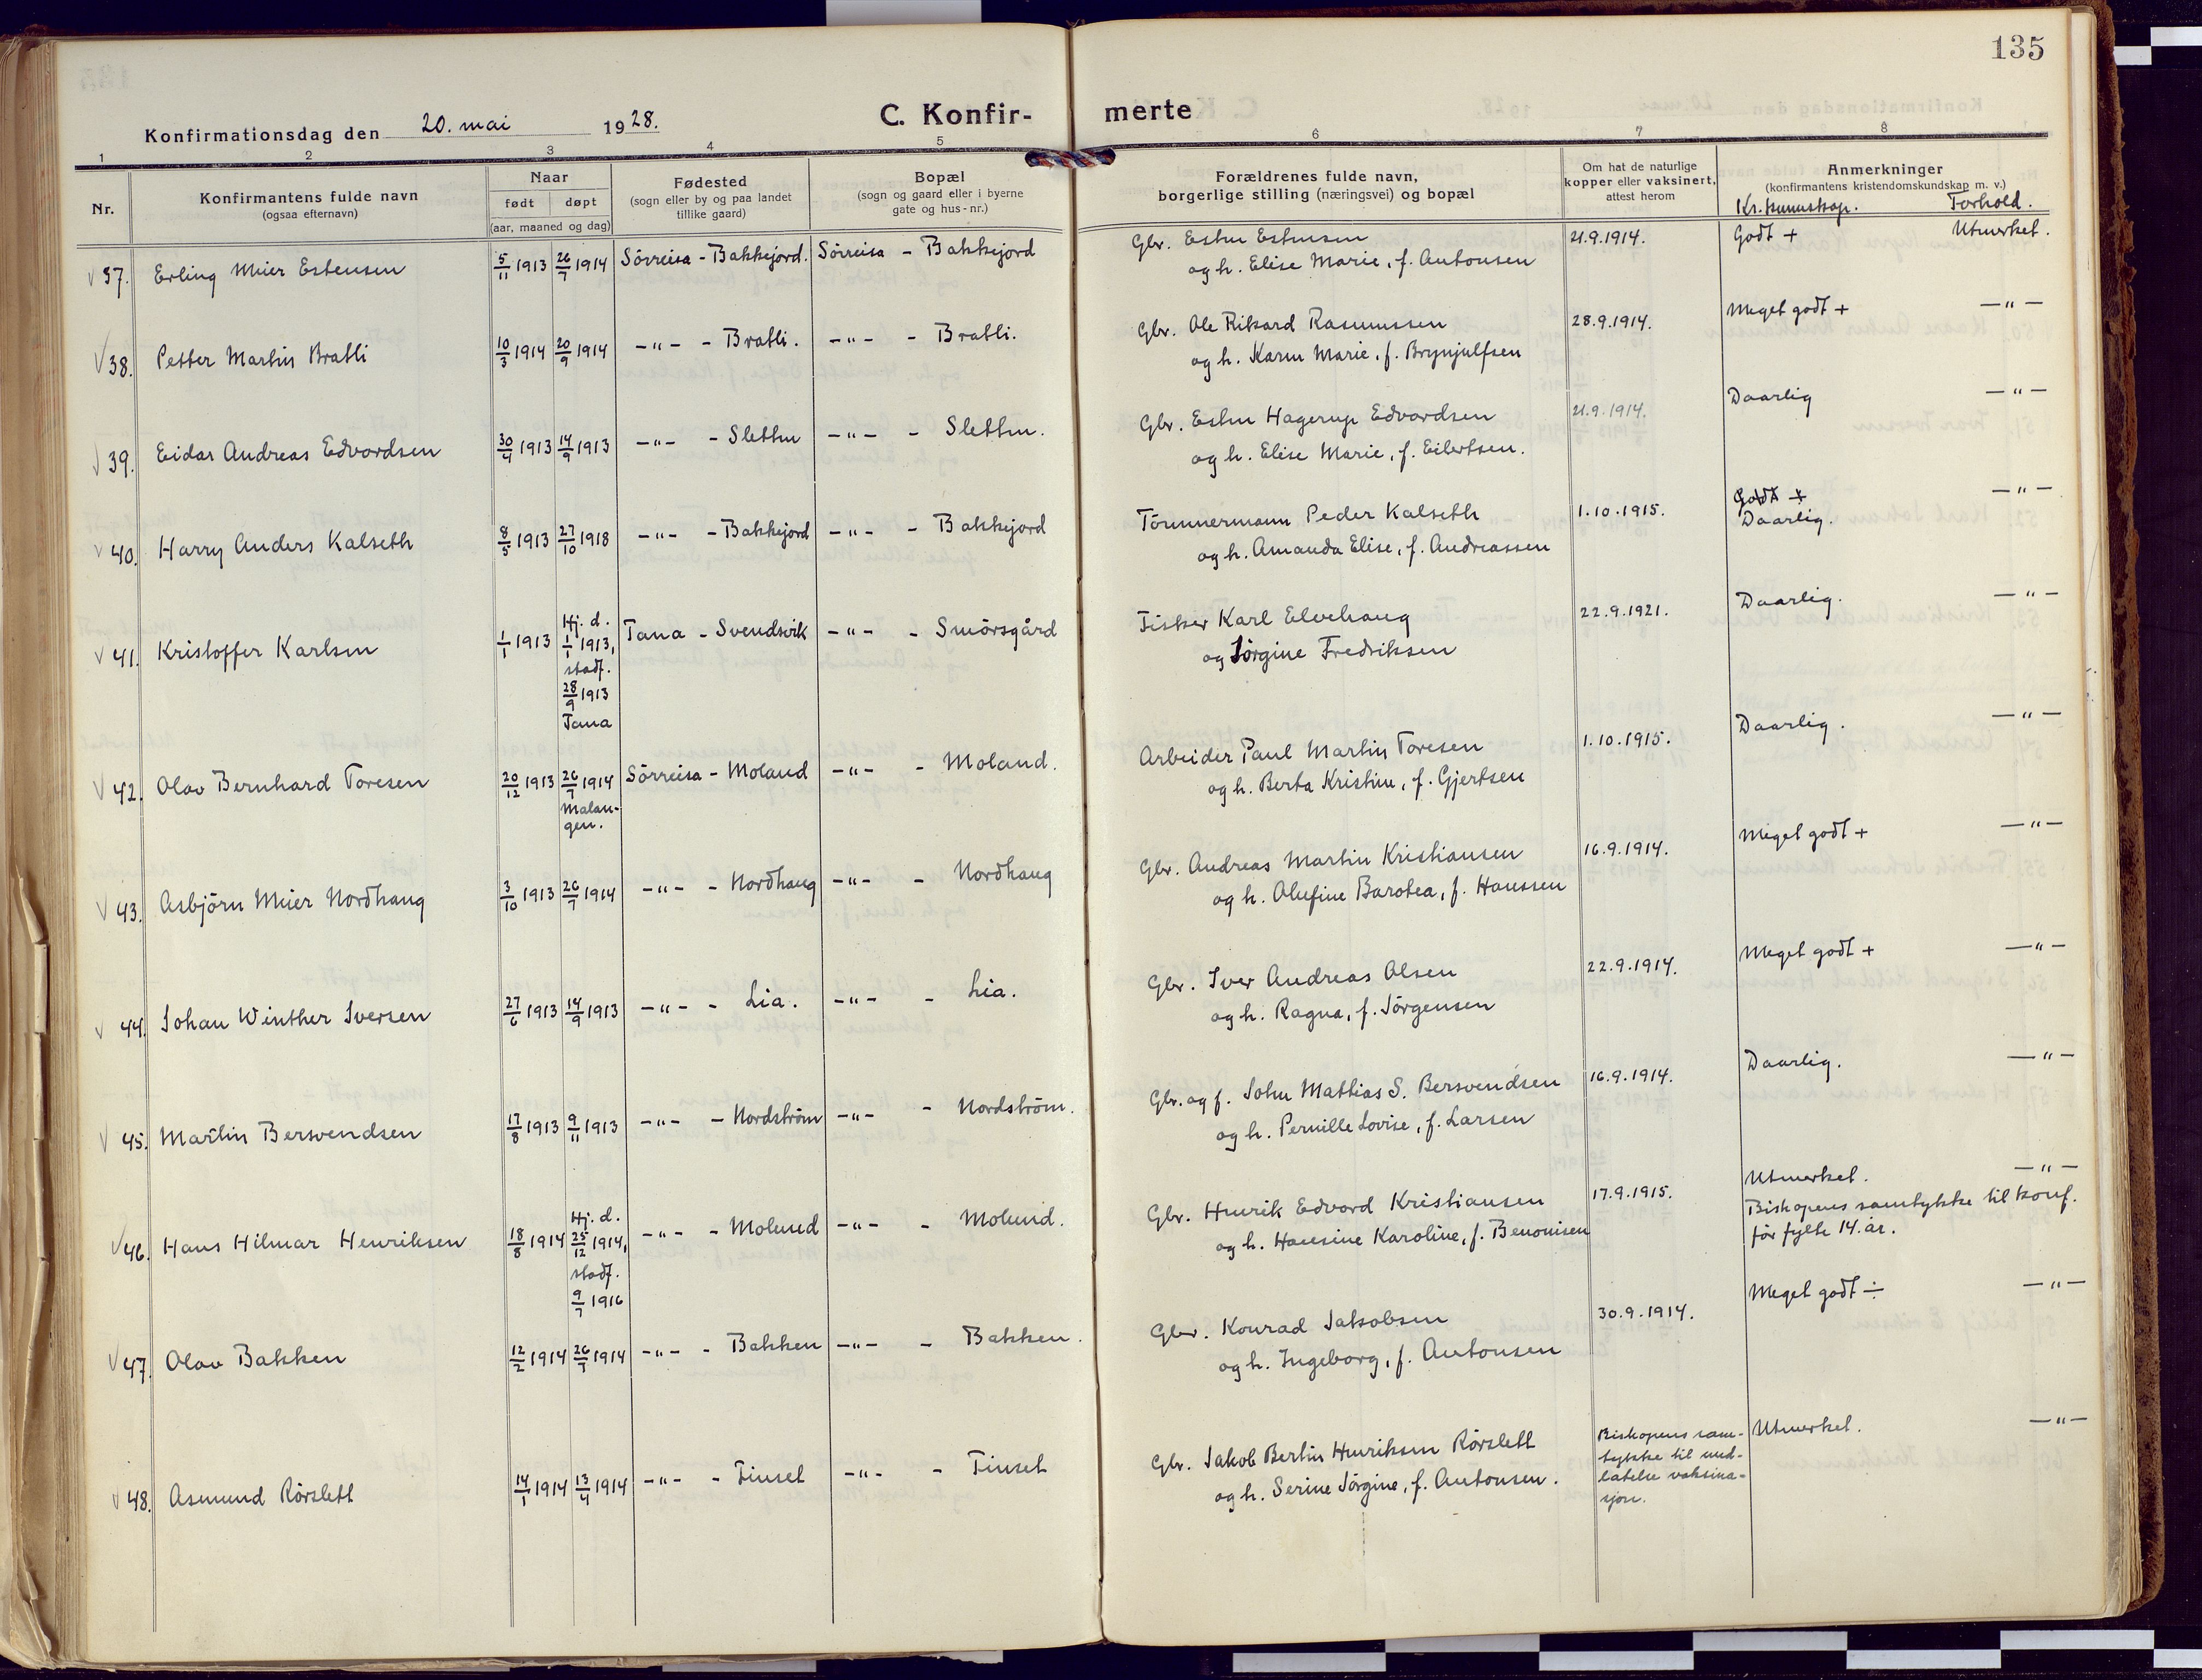 135
Konfirmationsdag den 20. mai 1928.
C. Konfir- merte
1 2 3 4 5 6 7 8
Nr.
Konfirmantens fulde navn
(ogsaa efternavn)
Naar
født døpt
(aar, maaned og dag)
Fødested
(sogn eller by og paa landet
tillike gaard)
Bopæl
(sogn og gaard eller i byerne
gate og hus-nr.)
Forældrenes fulde navn,
borgerlige stilling (næringsvei) og bopæl
Om hat de naturlige
kopper eller vaksinert,
attest herom
Anmerkninger
(konfirmantens kristendomskundskap m. v.)
Kr. kunnskap. Forhold.
37. Erling Meier Estensen 5/11 1913 26/7 1914 Sörreisa - Bakkejord. Sörreisa - Bakkejord Gbr. Esten Estensen 21.9.1914. Godt + Utmerket.
og h. Elise Marie, f. Antonsen
38. Petter Martin Bratli 10/3 1914 20/9 1914 -"- - Bratli. -"- - Bratli. Gbr. Ole Rikard Rasmussen 28.9.1914. Meget godt + -"-
og h. Karen Marie, f. Brynjulfsen
39. Eidar Andreas Edvardsen 30/4 1913 14/9 1913 -"- - Sletten -"- - Sletten. Gbr. Esten Hagerup Edvardsen 21.9.1914. Daarlig -"-
og h. Elise Marie, f. Eilertsen.
40. Harry Anders Kalseth 8/5 1913 27/10 1918 -"- - Bakkejord -"- - Bakkejord Tömmermann Peder Kalseth 1.10.1915. Godt + -"-
Daarlig.
og h. Amanda Elise, f. Andreassen
41. Kristoffer Karlsen 1/1 1913 Hj. d.
1/1 1913,
stadf.
28/9 1913
Tana
Tana - Svendsvik -"- - Smörsgård Fisker Karl Elvehaug 22.9.1921. Daarlig. -"-
og Jörgine Fredriksen
42. Olav Bernhard Toresen 20/12 1913 26/7 1914
Malan-
gen.
Sörreisa - Moland -"- - Moland. Arbeider Paul Martin Toresen 1.10.1915. Daarlig. -"-
og h. Berta Kristine, f. Gjertsen
43. Asbjörn Meier Nordhaug 3/10 1913 26/7 1914 -"- - Nordhaug -"- - Nordhaug Gbr. Andreas Martin Kristiansen 16.9.1914. Meget godt + -"-
og h. Olufine Barotea, f. Hanssen
44. Johan Winther Iversen 27/6 1913 14/9 1913 -"- - Lia. -"- - Lia. Gbr. Iver Andreas Olsen 22.9.1914. Meget godt + -"-
og h. Ragna, f. Jörgensen
45. Martin Bersvendsen 17/8 1913 9/11 1913 -"- - Nordström -"- - Nordström. Gbr. og f. John Mathias S. Bersvendsen 16.9.1914. Daarlig. -"-
og h. Pernille Lovise, f. Larsen
46. Hans Hilmar Henriksen 18/8 1914 Hj. d.
25/12 1914,
stadf.
9/7 1916
-"- - Molund -"- - Molund. Gbr. Henrik Edvard Kristiansen 17.9.1915. Utmerket. -"-
Biskopens samtykke til konf.
för fylte 14. år.
og h. Hansine Karoline, f. Benonisen
47. Olav Bakken 12/2 1914 26/7 1914 -"- - Bakken -"- - Bakken. Gbr. Konrad Jakobsen 30.9.1914. Meget godt ÷ -"-
og h. Ingeborg, f. Antonsen
48. Asmund Rörslett 14/1 1914 13/4 1914 -"- - Finset -"- - Finset Gbr. Jakob Bertin Henriksen Rörslett Biskopens sam-
tykke til und-
latelse vaksina-
sjon.
Utmerket. -"-
og h. Serine Jörgine, f. Antonsen.